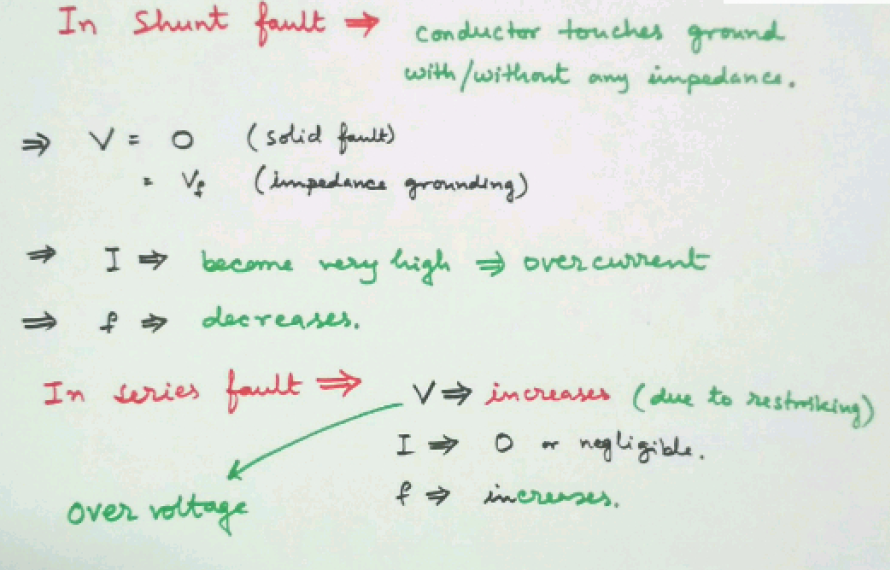 In Shunt fault ⇒ conductor touches ground
with/without any impedance.
⇒ V = 0 (solid fault)
= Vf (impedance grounding)
⇒ I ⇒ become very high ⇒ over current
⇒ f ⇒ decreases.
In series fault ⇒ V ⇒ increases (due to restriking)
I ⇒ 0 or negligible.
f ⇒ increases.
Over voltage